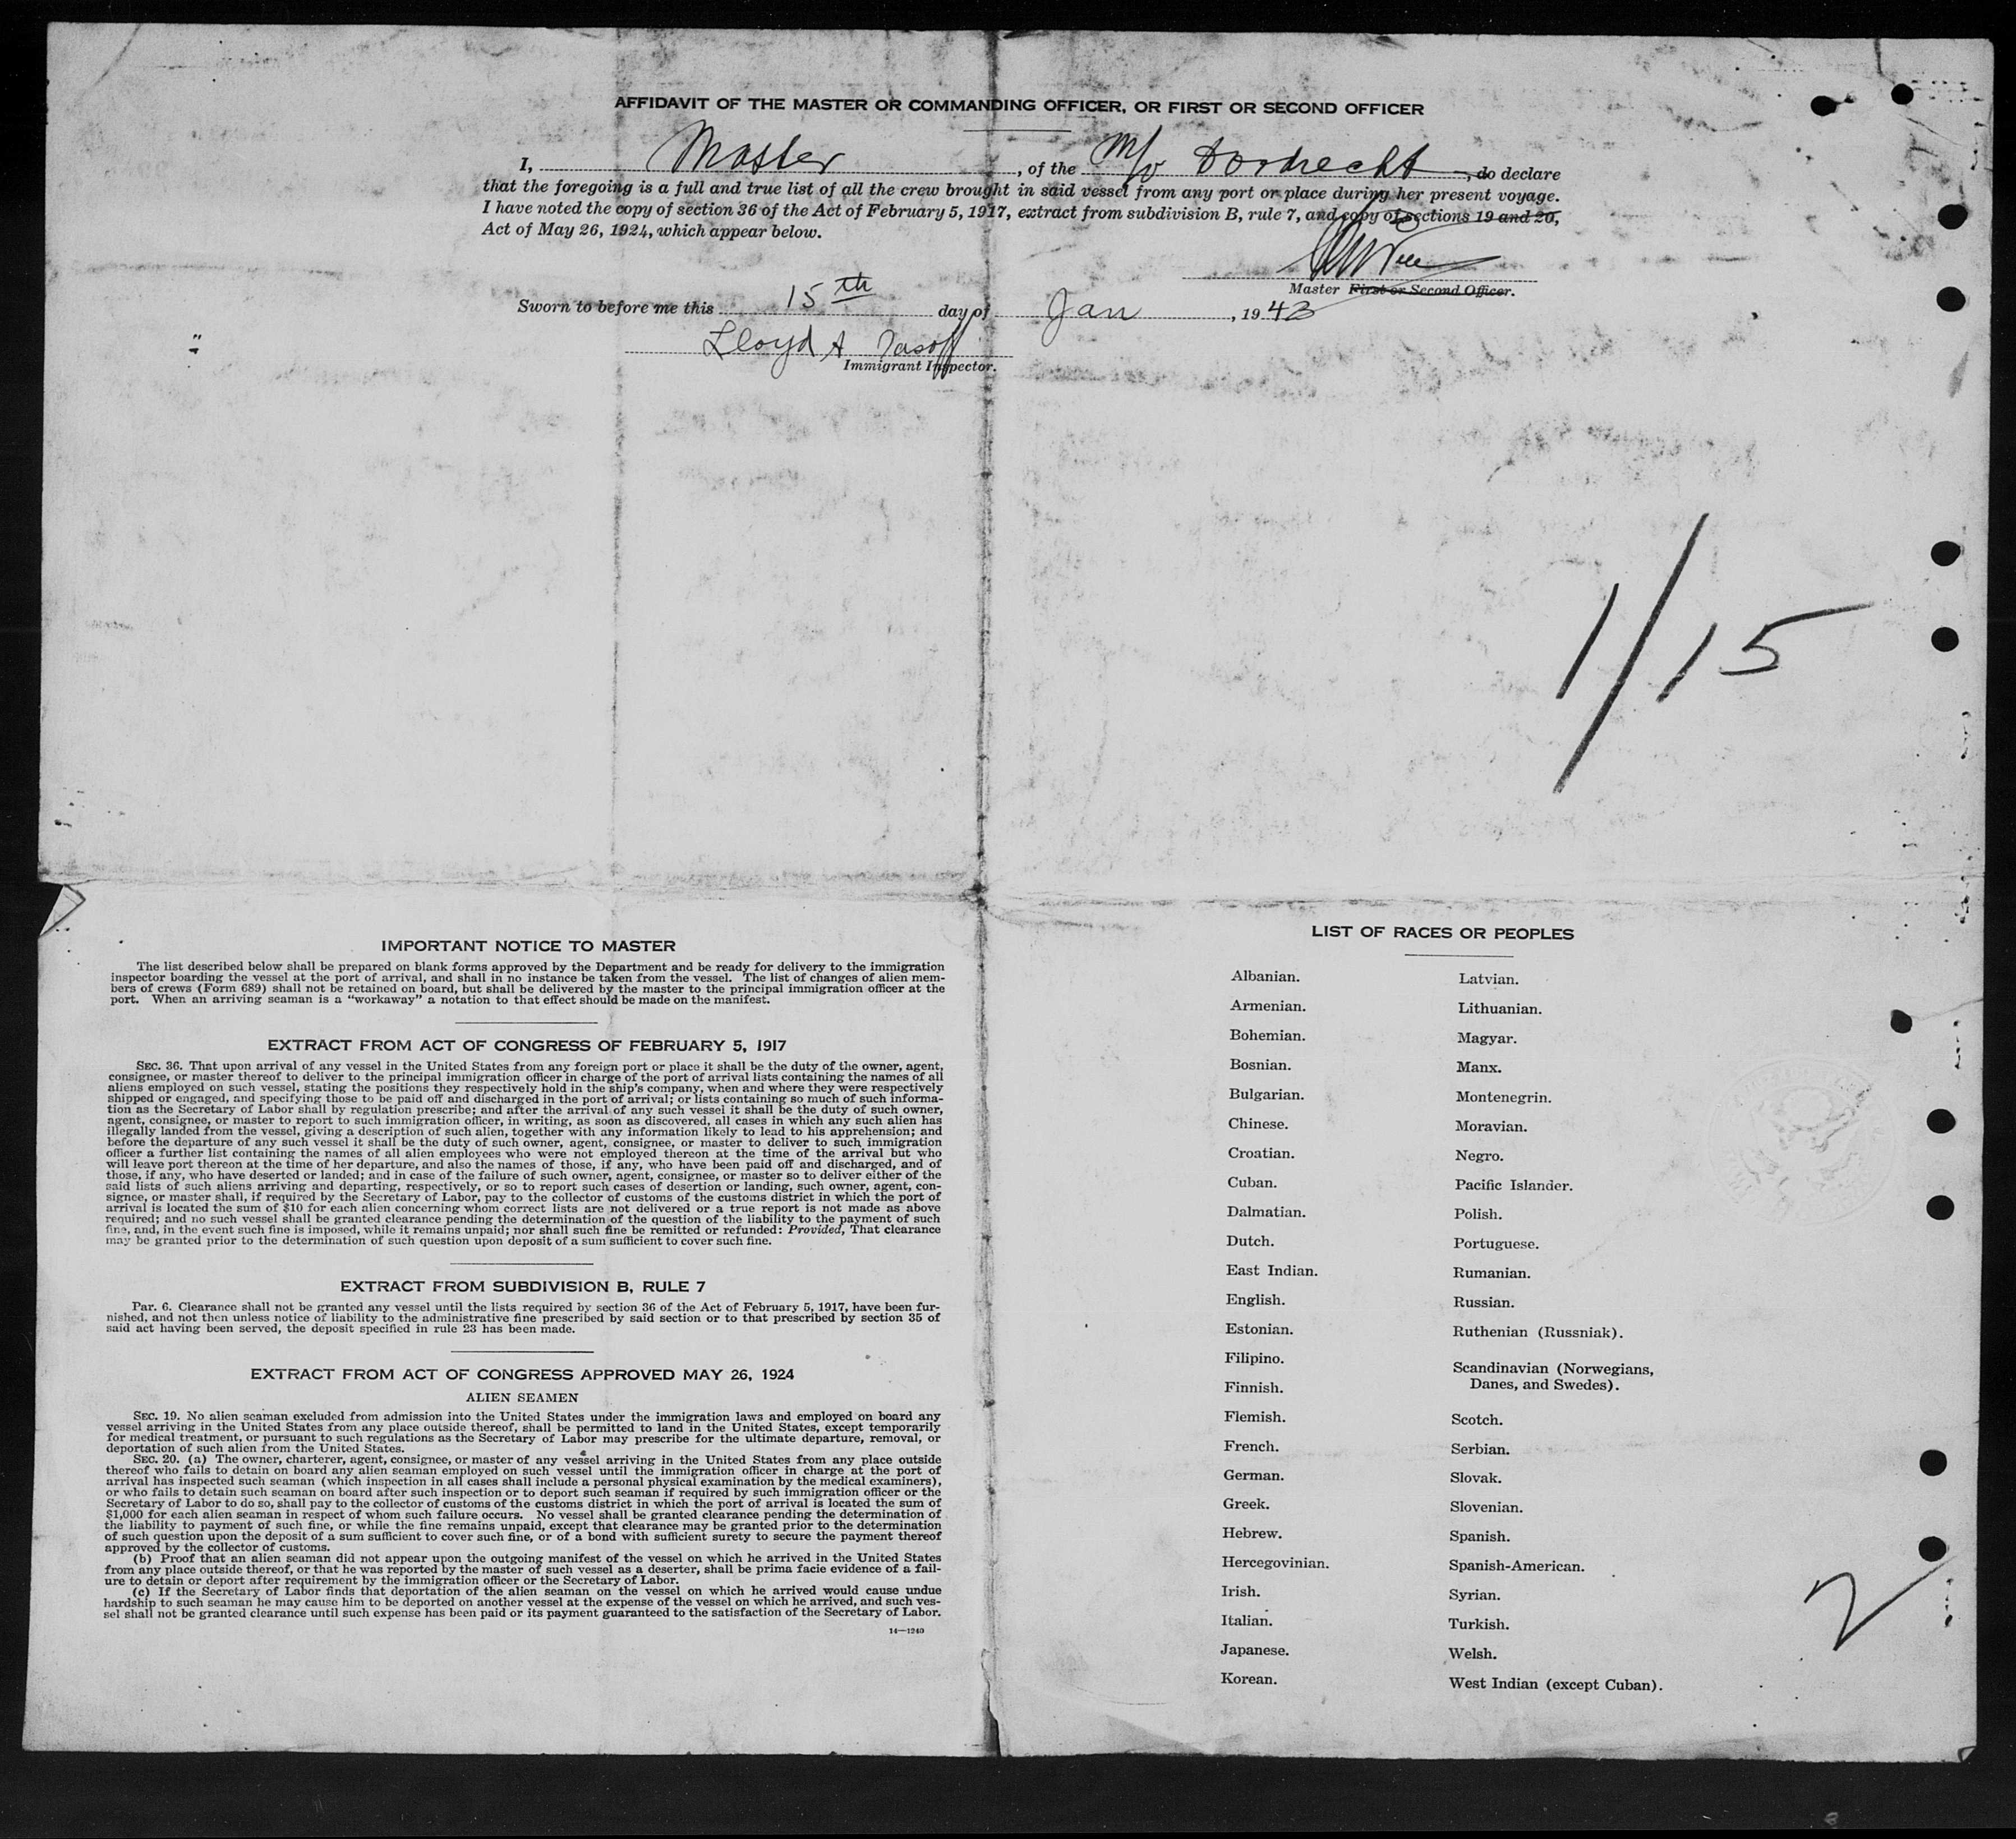 AFFIDAVIT OF THE MASTER OR COMMANDING OFFICER, OR FIRST OR SECOND OFFICER
I, Master, of the M/V Dordrecht, do declare
that the foregoing is a full and true list of all the crew brought in said vessel from any port or place during her present voyage.
I have noted the copy of section 36 of the Act of February 5, 1917, extract from subdivision B, rule 7, and copy of sections 19 and 20,
Act of May 26, 1924, which appear below.
Master First or Second Officer.
Sworn to before me this 15th day of Jan, 1943
Lloyd A
Immigrant Inspector.
1/15
IMPORTANT NOTICE TO MASTER
The list described below shall be prepared on blank forms approved by the Department and be ready for delivery to the immigration
inspector boarding the vessel at the port of arrival, and shall in no instance be taken from the vessel. The list of changes of alien mem-
bers of crews (Form 689) shall not be retained on board, but shall be delivered by the master to the principal immigration officer at the
port. When an arriving seaman is a "workaway" a notation to that effect should be made on the manifest.
EXTRACT FROM ACT OF CONGRESS OF FEBRUARY 5, 1917
SEC. 36. That upon arrival of any vessel in the United States from any foreign port or place it shall be the duty of the owner, agent,
consignee, or master thereof to deliver to the principal immigration officer in charge of the port of arrival lists containing the names of all
aliens employed on such vessel, stating the positions they respectively hold in the ship's company, when and where they were respectively
shipped or engaged, and specifying those to be paid off and discharged in the port of arrival; or lists containing so much of such informa-
tion as the Secretary of Labor shall by regulation prescribe; and after the arrival of any such vessel it shall be the duty of such owner,
agent, consignee, or master to report to such immigration officer, in writing, as soon as discovered, all cases in which any such alien has
illegally landed from the vessel, giving a description of such alien, together with any information likely to lead to his apprehension; and
before the departure of any such vessel it shall be the duty of such owner, agent, consignee, or master to deliver to such immigration
officer a further list containing the names of all alien employees who were not employed thereon at the time of the arrival but who
will leave port thereon at the time of her departure, and also the names of those, if any, who have been paid off and discharged, and of
those, if any, who have deserted or landed; and in case of the failure of such owner, agent, consignee, or master so to deliver either of the
said lists of such aliens arriving and departing, respectively, or so to report such cases of desertion or landing, such owner, agent, con-
signee, or master shall, if required by the Secretary of Labor, pay to the collector of customs of the customs district in which the port of
arrival is located the sum of $10 for each alien concerning whom correct lists are not delivered or a true report is not made as above
required; and no such vessel shall be granted clearance pending the determination of the question of the liability to the payment of such
fine, and, in the event such fine is imposed, while it remains unpaid; nor shall such fine be remitted or refunded: Provided, That clearance
may be granted prior to the determination of such question upon deposit of a sum sufficient to cover such fine.
EXTRACT FROM SUBDIVISION B, RULE 7
Par. 6. Clearance shall not be granted any vessel until the lists required by section 36 of the Act of February 5, 1917, have been fur-
nished, and not then unless notice of liability to the administrative fine prescribed by said section or to that prescribed by section 35 of
said act having been served, the deposit specified in rule 23 has been made.
EXTRACT FROM ACT OF CONGRESS APPROVED MAY 26, 1924
ALIEN SEAMEN
SEC. 19. No alien seaman excluded from admission into the United States under the immigration laws and employed on board any
vessel arriving in the United States from any place outside thereof, shall be permitted to land in the United States, except temporarily
for medical treatment, or pursuant to such regulations as the Secretary of Labor may prescribe for the ultimate departure, removal, or
deportation of such alien from the United States.
SEC. 20. (a) The owner, charterer, agent, consignee, or master of any vessel arriving in the United States from any place outside
thereof who fails to detain on board any alien seaman employed on such vessel until the immigration officer in charge at the port of
arrival has inspected such seaman (which inspection in all cases shall include a personal physical examination by the medical examiners),
or who fails to detain such seaman on board after such inspection or to deport such seaman if required by such immigration officer or the
Secretary of Labor to do so, shall pay to the collector of customs of the customs district in which the port of arrival is located the sum of
$1,000 for each alien seaman in respect of whom such failure occurs. No vessel shall be granted clearance pending the determination of
the liability to payment of such fine, or while the fine remains unpaid, except that clearance may be granted prior to the determination
of such question upon the deposit of a sum sufficient to cover such fine, or of a bond with sufficient surety to secure the payment thereof
approved by the collector of customs.
(b) Proof that an alien seaman did not appear upon the outgoing manifest of the vessel on which he arrived in the United States
from any place outside thereof, or that he was reported by the master of such vessel as a deserter, shall be prima facie evidence of a fail-
ure to detain or deport after requirement by the immigration officer or the Secretary of Labor.
(c) If the Secretary of Labor finds that deportation of the alien seaman on the vessel on which he arrived would cause undue
hardship to such seaman he may cause him to be deported on another vessel at the expense of the vessel on which he arrived, and such ves-
sel shall not be granted clearance until such expense has been paid or its payment guaranteed to the satisfaction of the Secretary of Labor.
14—1240
LIST OF RACES OR PEOPLES
Albanian.
Armenian.
Bohemian.
Bosnian.
Bulgarian.
Chinese.
Croatian.
Cuban.
Dalmatian.
Dutch.
East Indian.
English.
Estonian.
Filipino.
Finnish.
Flemish.
French.
German.
Greek.
Hebrew.
Hercegovinian.
Irish.
Italian.
Japanese.
Korean.
Latvian.
Lithuanian.
Magyar.
Manx.
Montenegrin.
Moravian.
Negro.
Pacific Islander.
Polish.
Portuguese.
Rumanian.
Russian.
Ruthenian (Russniak).
Scandinavian (Norwegians,
Danes, and Swedes).
Scotch.
Serbian.
Slovak.
Slovenian.
Spanish.
Spanish-American.
Syrian.
Turkish.
Welsh.
West Indian (except Cuban).
2